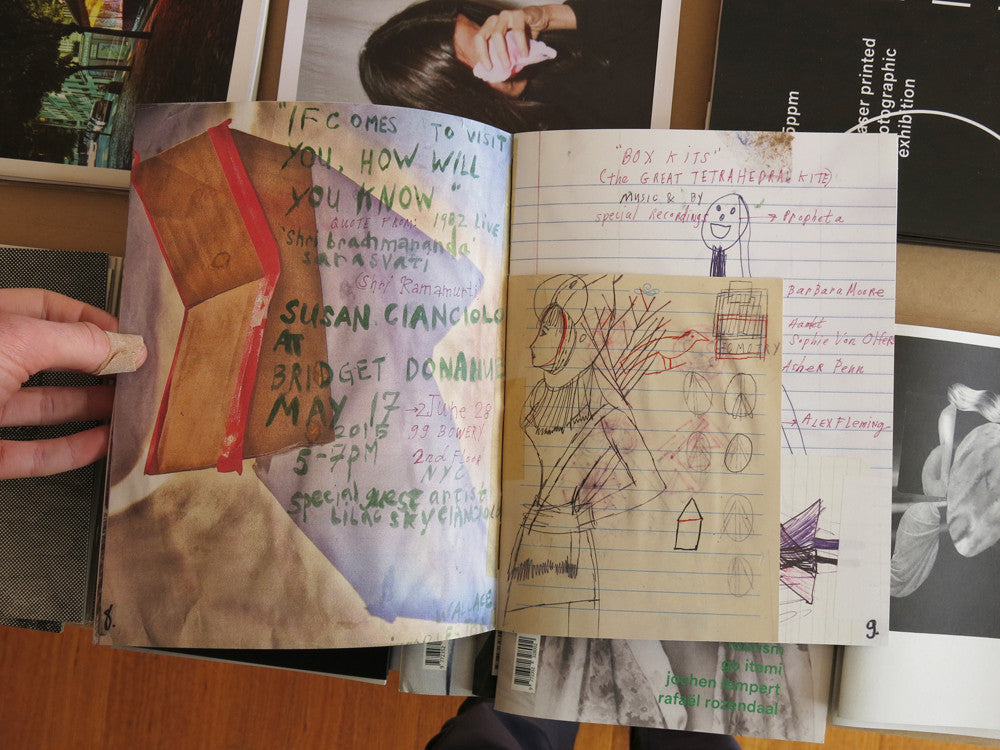 "IF C OMES TO VISIT
YOU, HOW WILL
YOU KNOW"
QUOTE FROM: 1982 LIVE
'Shri brahmananda
sarasvati'
(Shri Ramamurti)
SUSAN CIANCIOLO
AT
BRIDGET DONAHUE
MAY 17 →2 June 28
2015 99 BOWERY
5-7PM 2nd Floor
NYC
special guest artist
LILAC SKY CIANCIOLO
WALLACE
8.
"BOX KITS"
(the GREAT TETRAHEDRAL KITE)
MUSIC & BY
special Recordings → Propheta
BarBara Moore
Sophie Von Olfers
Asher Penn
→ ALEX Fleming
9.
5ppm
aser printed
otographic
exhibition
go itami
jochen lempert
rafaël rozendaal